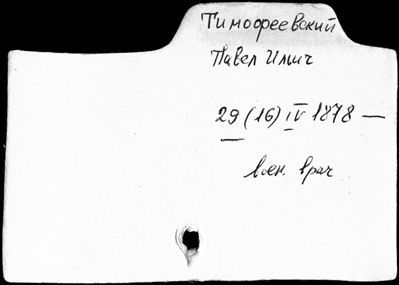 Тимофеевский
Павел Ильич
29 (16) IV 1878 —
воен. врач